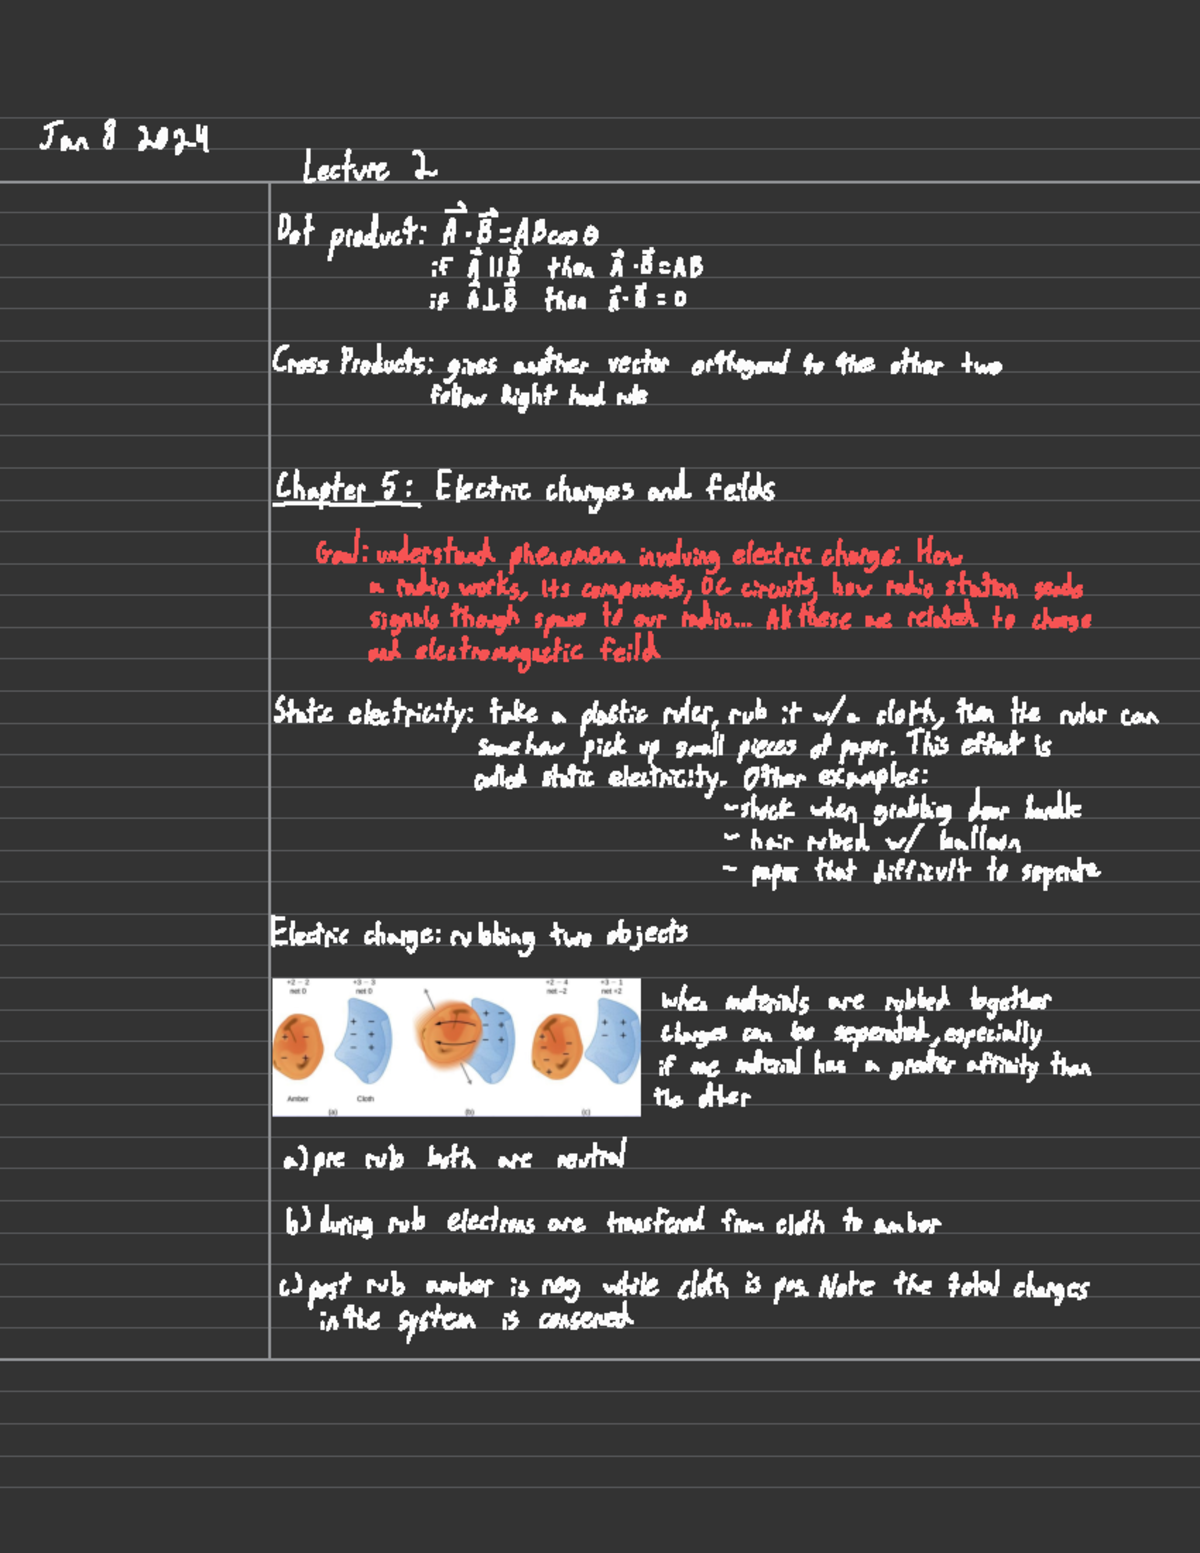 Jan 8 2024
Lecture 2
Dot product: A⃗ · B⃗ = AB cos θ
if A⃗ || B⃗ then A⃗ · B⃗ = AB
if A⃗ ⊥ B⃗ then A⃗ · B⃗ = 0
Cross Products: gives another vector orthogonal to the other two
follow Right hand rule
Chapter 5: Electric charges and feilds
Goal: understand phenomena involving electric charge: How
a radio works, its components, DC circuits, how radio station sends
signals though space to our radio... All these are related to charge
and electromagnetic feild
Static electricity: take a plastic ruler, rub it w/a cloth, then the ruler can
somehow pick up small pieces of paper. This effect is
called static electricity. Other examples:
- shock when grabbing door handle
- hair rubed w/ balloon
- paper that difficult to seperate
Electric charge: rubbing two objects
+2 − 2 +3 − 3 +2 − 4 +3 − 1
net 0 net 0 net −2 net +2
Amber Cloth
(a) (b) (c)
when materials are rubbed together
charges can be seperated, especially
if one material has a greater affinity than
the other
a) pre rub both are neutral
b) during rub electrons are transfered from cloth to amber
c) post rub amber is neg while cloth is pos. Note the total charges
in the system is conserved